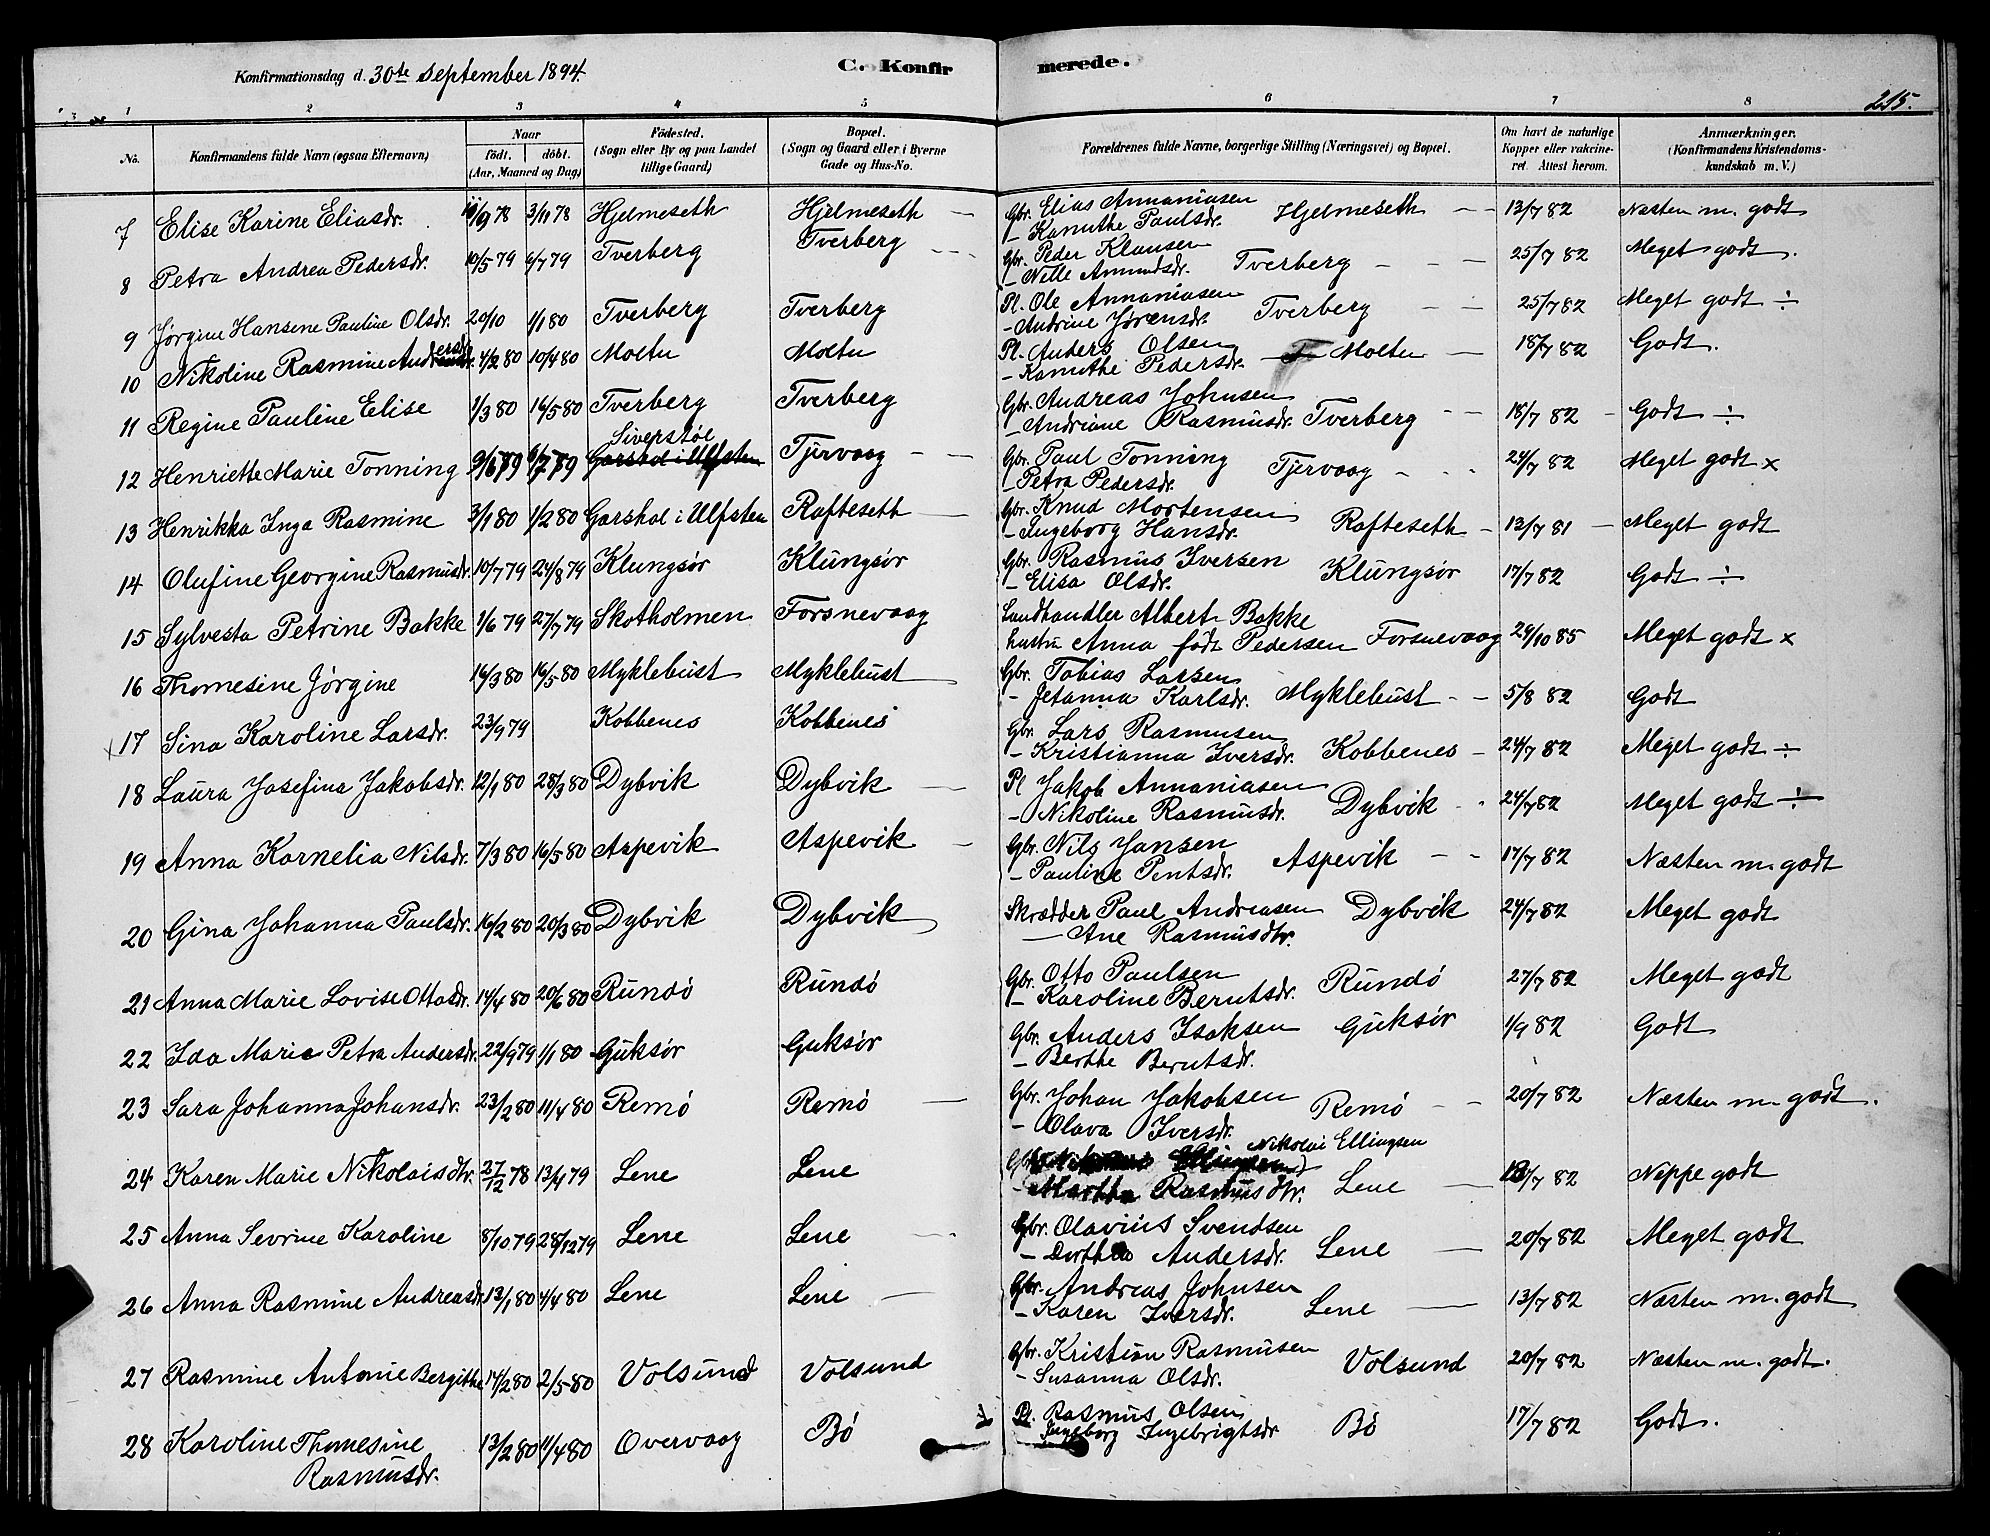 Konfirmationsdag d. 30te september 1894.
C. Konfirmerede.
215.
1 2 3 4 5 6 7 8
No.
Konfirmandens fulde Navn (ogsaa Efternavn)
Naar
födt. döbt.
(Aar, Maaned og Dag)
Födested.
(Sogn eller By og paa Landet
tillige Gaard)
Bopæl.
(Sogn og Gaard eller i Byerne
Gade og Hus-No.
Forældrenes fulde Navne, borgerlige Stilling (Næringsvei) og Bopæl.
Om havt de naturlige
Kopper eller vakcine-
ret. Attest herom.
Anmærkninger.
(Konfirmandens Kristendoms-
kundskab m. V.)
7 Elise Karine Eliasdr. /9 78 3/11 78 Hjelmeseth Hjelmeseth — Gbr. Elias Annaniasen
- Kanuthe Paulsdr. Hjelmeseth — 13/7 82 Næsten m. godt
8 Petra Andrea Pedersdr. 10/5 79 6/7 79 Tverberg Tverberg Gbr. Peder Klausen
- Nelle Amundsdr. Tverberg - - 25/7 82 Meget godt.
9 Jørgine Hansene Pauline Olsdr. 20/10 1/1 80 Tverberg Tverberg Pl. Ole Annaniasen
- Andrine Jørensdr. Tverberg 25/7 82 Meget godt ÷
10 Nikoline Rasmine Andersdr. 4/2 80 10/4 80 Moltu Moltu Pl. Anders Olsen
- Kanuthe Pedersdr. Moltu — 18/7 82 Godt.
11 Regine Pauline Elise 1/3 80 16/5 80 Tverberg Tverberg Gbr. Andreas Johnsen
- Andriane Rasmusdr. Tverberg - - 18/7 82 - Godt ÷
12 Henriette Marie Tonning 9/6 79 6/7 79 Siverstøl
Garshol i Ulfsten Tjervaag - - Gbr. Paul Tonning
- Petra Pedersdr. Tjervaag - - 24/7 82 Meget godt x
13 Henrikka Inga Rasmine 3/1 80 1/2 80 Garshol i Ulfsten Rafteseth — Gbr. Knud Mortensen
- Ingeborg Hansdr. Rafteseth - 13/7 81 — Meget godt
14 Olufine Georgine Rasmusdr. 10/7 79 24/8 79 Klungsør Klungsør Gbr. Rasmus Iversen
- Elisa Olsdr. Klungsør 17/7 82 Godt ÷
15 Sylvesta Petrine Bakke 1/6 79 27/7 79 Skotholmen Forsnevaag Landhandler Albert Bakke
hustru Anna født Pedersen Forsnevaag 24/10 85 Meget godt x
16 Thomesine Jørgine 16/3 80 16/5 80 Myklebust Myklebust Gbr. Tobias Larsen
- Jetanna Karlsdr. Myklebust - - 5/8 82 Godt
17 Sina Karoline Larsdr. 23/9 79 Kobbenes Kobbenes Gbr. Lars Rasmusen
- Kristianna Iversdr. Kobbenes - 24/7 82 Meget godt ÷
18 Laura Josefina Jakobsdr. 12/1 80 28/3 80 Dybvik Dybvik — Pl Jakob Annaniasen
- Nikoline Rasmusdr. Dybvik - - 24/7 82 Meget godt ÷
19 Anna Kornelia Nilsdr. 7/3 80 16/5 80 Aspevik Aspevik - Gbr. Nils Jansen
- Pauline Pentsdr. Aspevik - - 17/7 82 Næsten m. godt
20 Gina Johanna Paulsdr. 16/2 80 20/3 80 Dybvik Dybvik Skrædder Paul Andreasen
— Ane Rasmusdtr. Dybvik 24/7 82 Meget godt
21 Anna Marie Lovise Ottosdr. 14/4 80 20/6 80 Rundø Rundø Gbr. Otto Paulsen
- Karoline Berntsdr. Rundø 27/7 82 Meget godt
22 Ida Marie Petra Andersdr. 22/9 79 1/1 80 Guksør Guksør Gbr. Anders Isaksen
- Berthe Berntsdr. Guksør 1/9 82 Godt
23 Sara Johanna Johansdr. 23/2 80 11/4 80 Remø Remø — Gbr. Johan Jakobsen
- Olava Iversdr. Remø - - 20/7 82 Næsten m. godt.
24 Karen Marie Nikolaisdtr. 27/12 78 13/4 79 Lene Lene Nikolai Ellingsen
- Martha Rasmusdtr. Lene — 18/7 82 Neppe godt
25 Anna Sevrine Karoline 8/10 79 28/12 79 Lene Lene Gbr. Olavius Svendsen
- Dorthea Andersdr. Lene — 20/7 82 Meget godt
26 Anna Rasmine Andreasdr. 13/1 80 4/4 80 Lene Lene — Gbr. Andreas Johnsen
- Karen Iversdr. Lene — 13/7 82 Næsten m. godt
27 Rasmine Antonie Bergithe 14/2 80 2/5 80 Volsund Volsund Gbr. Kristian Rasmusen
- Susanna Olsdr. Volsund 20/7 82 Næsten m. godt.
28 Karoline Thomesine
Rasmusdr. 13/2 80 11/4 80 Overvaag Bø Pl. Rasmus Olsen
Ingeborg Ingebrigtsdr Bø 17/7 82 Godt.